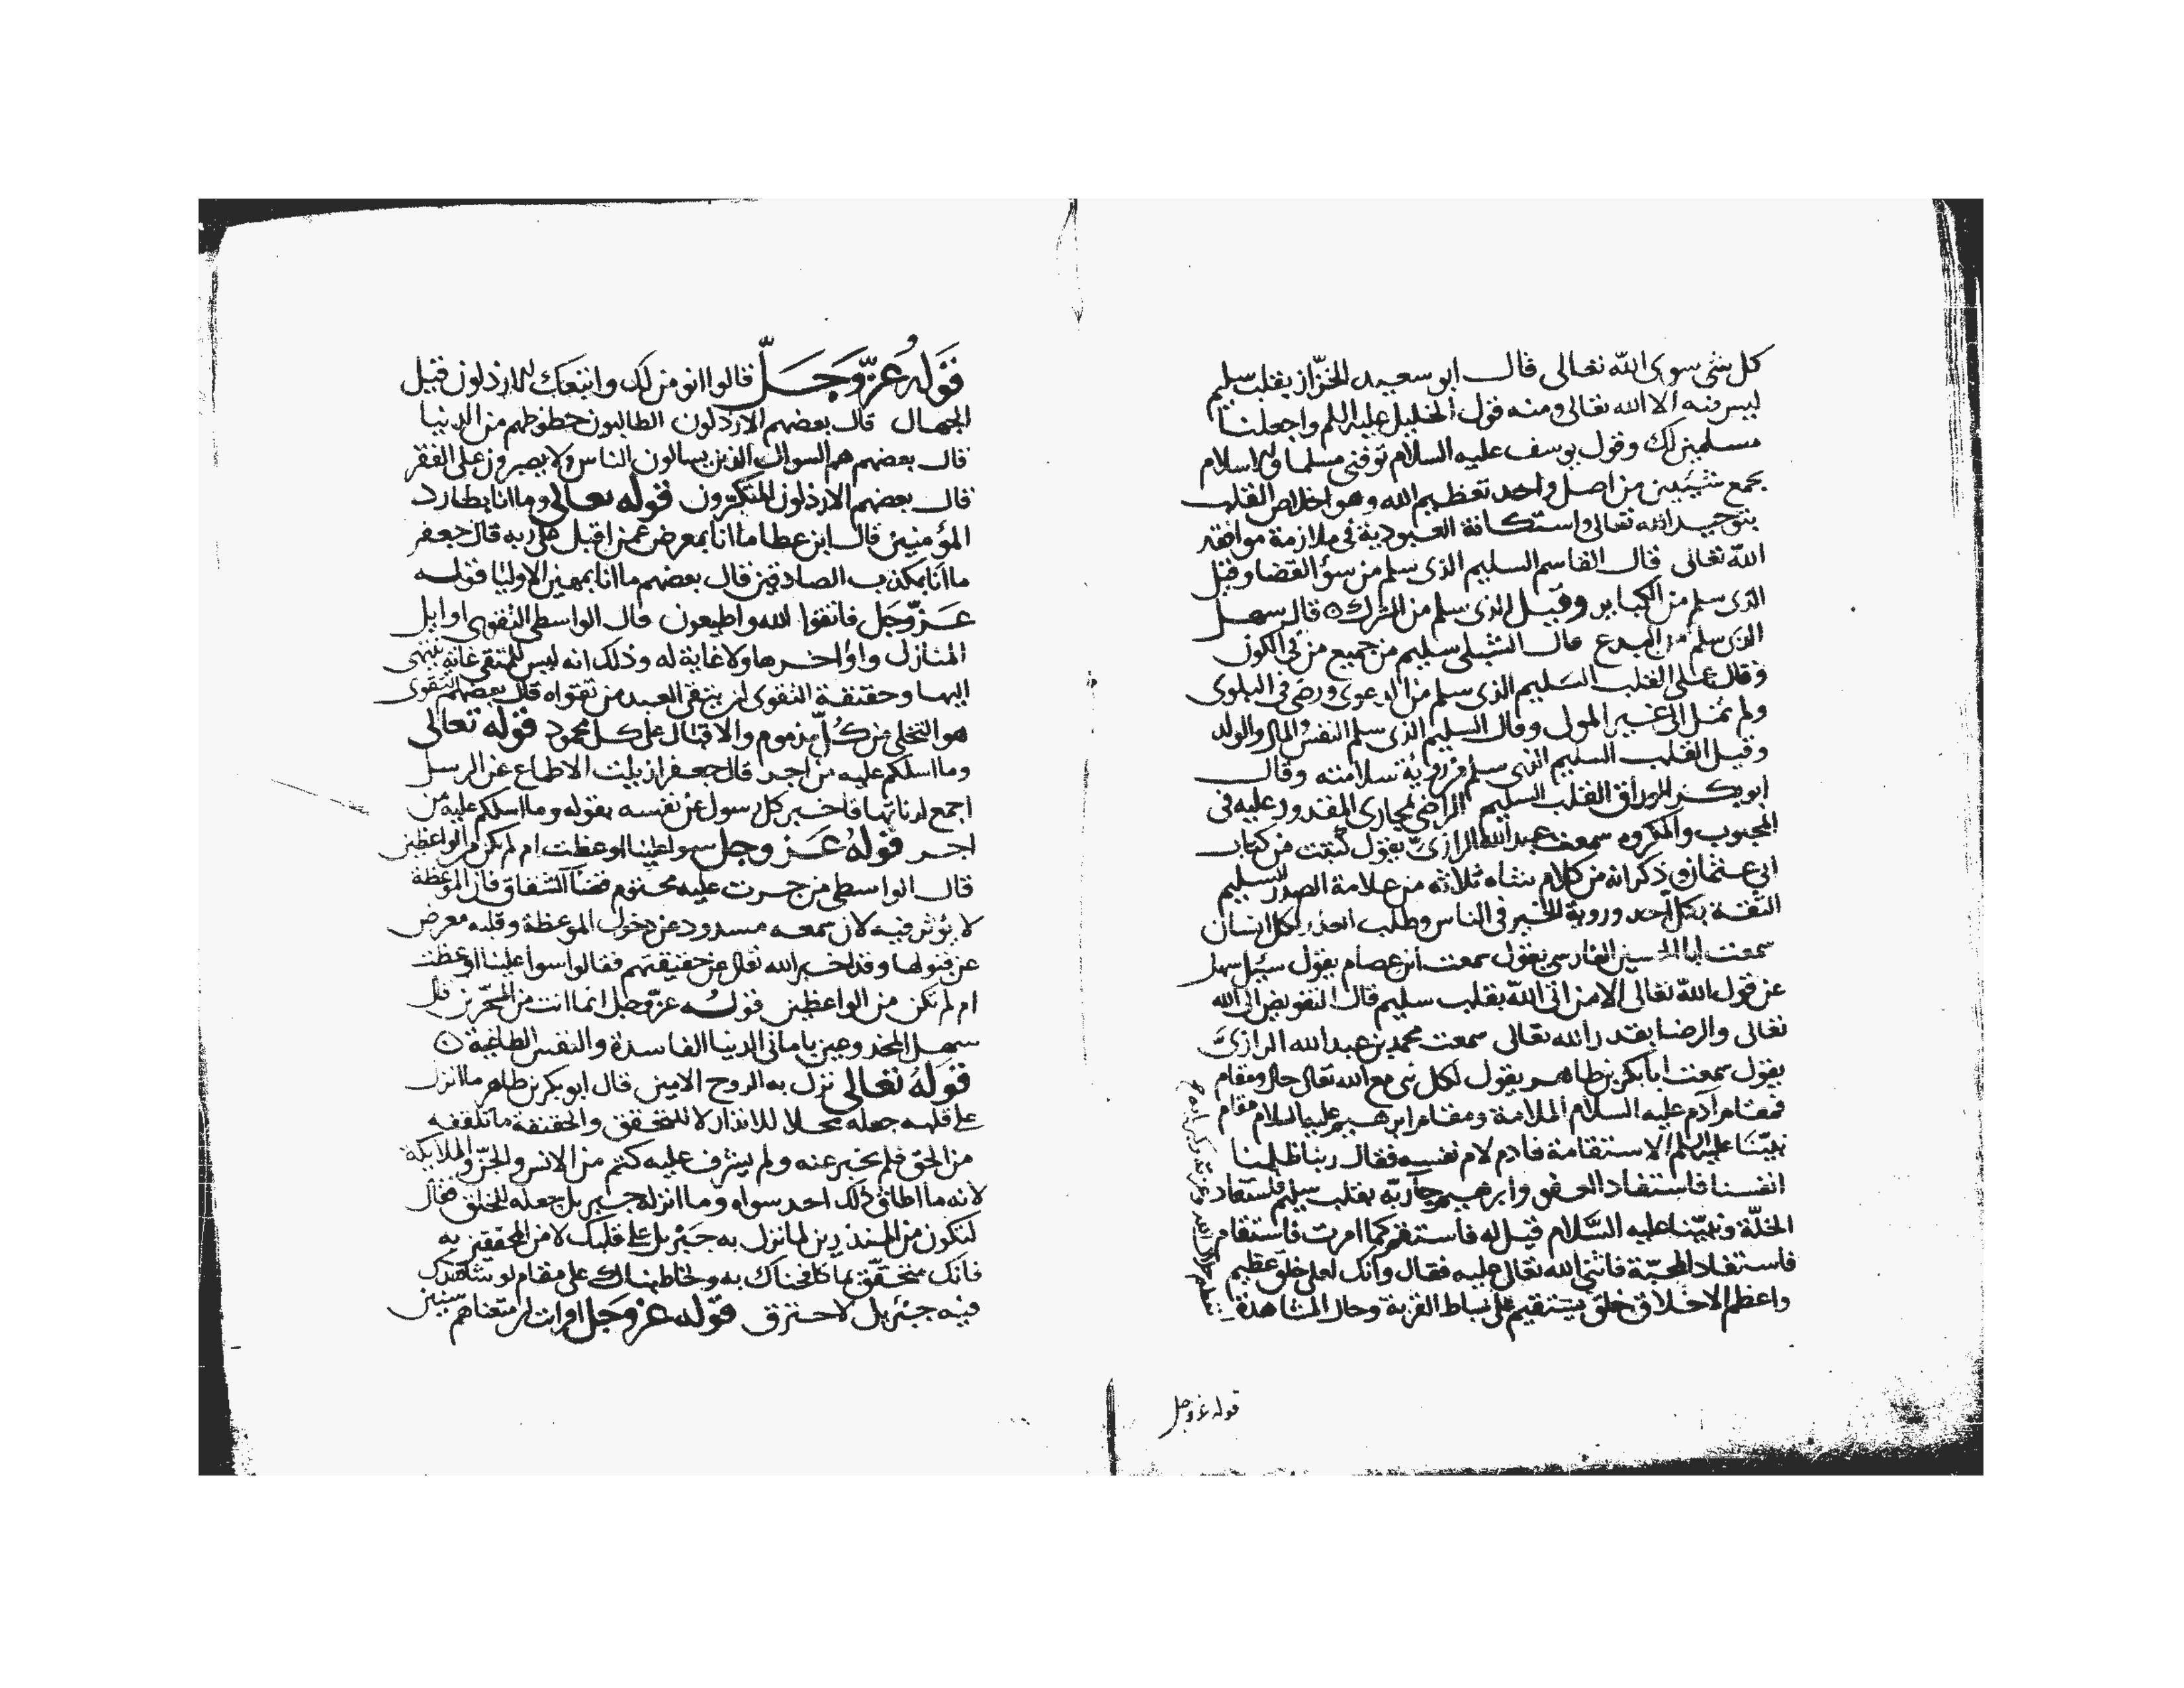 كل شي سوى الله تعالى قال ابو سعيد الخزاز بقلب سليم
ليس فيه الا الله تعالى ومنه قول الخليل عليه السلم واجعلنا
مسلمين لك وقول يوسف عليه السلام توفني مسلما والاسلام
يجمع شيئين من اصل واحد تعظيم الله وهو اخلاص القلب
بتوحيد الله تعالى واستكانة العبودية في ملازمة موافقة
الله تعالى قال القاسم السليم الذي سلم من سؤ القضا وقيل
الذي سلم من الكباير وقيل الذي سلم من الشرك قال سهل
الذي سلم من البدع قال الشبلي سليم من جميع من في الكون
وقال على القلب السليم الذي سلم من الدعوى ورضي في البلوى
ولم تمل الى غير المولى وقال السليم الذي سلم النفس والمال والولد
وقيل القلب السليم الذي سلم من رؤية سلامته وقال
ابو بكر الوراق القلب السليم الراضي بمجاري المقدور عليه في
المحبوب والمكروه سمعت عبد الله الرازي يقول كتبت من كتاب
ابي عثمان وذكر انه من كلام شاه ثلاثه من علامة الصدر السليم
الثقة بكل احد وروية الخير في الناس وطلب العذر لكل انسان
سمعت ابا الحسين الفارسي يقول سمعت ابن عصام يقول سيل سهل
عن قول الله تعالى الا من اتى الله بقلب سليم قال التفويض الى الله
تعالى والرضا بقدر الله تعالى سمعت محمد بن عبد الله الرازي
يقول سمعت ابا بكر بن طاهر يقول لكل نبي مع الله تعالى حال ومقام
فمقام آدم عليه السلام الملامة ومقام ابرهيم عليه السلام مقام
نبينا عليه السلم الاستقامة فادم لام نفسه فقال ربنا ظلمنا
انفسنا فاستفاد العفو وابرهيم جآ ربه بقلب سليم فاستفاد
الخلّة ونبينا عليه السلام قيل له فاستقم كما امرت فاستقام
فاستفاد المحبّة فاثنى الله تعالى عليه فقال وانك لعلى خلق عظيم
واعظم الاخلاق خلق يستقيم على بساط القربة وحال المشاهدة
قوله عز وجل
قوله عزّ وجلّ قالوا انومن لك واتبعك الارذلون قيل
الجهال قال بعضهم الارذلون الطالبون حظوظهم من الدنيا
قال بعضهم هم السوال الذين يسالون الناس ولا يصبرون على الفقر
قال بعضهم الارذلون المتكبّرون قوله تعالى وما انا بطارد
المؤمنين قال ابن عطا ما انا بمعرض عمن اقبل على ربه قال جعفر
ما انا بمكذب الصادقين قال بعضهم ما انا بمهين الاوليا قوله
عزّ وجل فاتقوا الله واطيعون قال الواسطي التقوى اوايل
المنازل واواخرها ولا غاية له وذلك انه ليس للمتقي غاية ينتهى
اليها وحقيقة التقوى ان يتقي العبد من تقواه قال بعضهم التقوى
هو التخلي من كلّ مذموم والاقبال على كل محمود قوله تعالى
وما اسلكم عليه من اجر قال جعفر ازيلت الاطماع عن الرسل
اجمع لدناتها فاخبر كل رسول عن نفسه بقوله وما اسلكم عليه من
اجر قوله عز وجل سوا علينا اوعظت ام لم تكن من الواعظين
قال الواسطي من جرت عليه محتوم قضآ الشقاق فان الموعظة
لا يؤثر فيه لان سمعه مسدود عن دخول الموعظة وقلبه معرض
عن قبولها وقد اخبر الله تعالى عن حقيقتهم فقالوا سوا علينا اوعظت
ام لم تكن من الواعظين قوله عزّ وجل انما انت من المسحّرين قال
سهل المخدوعين باماني الدنيا الفاسدة والنفس الطاغية
قوله تعالى نزل به الروح الامين قال ابو بكر بن طاهر ما انزل
على قلبه جعله محلا للانذار لا للتحقق والحقيقة ما تلقفه
من الحق فلم يخبر عنه ولم يشرف عليه كثم من الانس والجنّ والملايكة
لانه ما اطاق ذلك احد سواه وما انزله جبريل جعله للخلق فقال
لتكون من المنذرين لما نزل به جبريل على قلبك لا من المحققين به
فانك متحقّق بما كافحناك به وخاطبناك على مقام لو شاهدك
فيه جبريل لاحترق قوله عز وجل افرايت ان متعناهم سنين